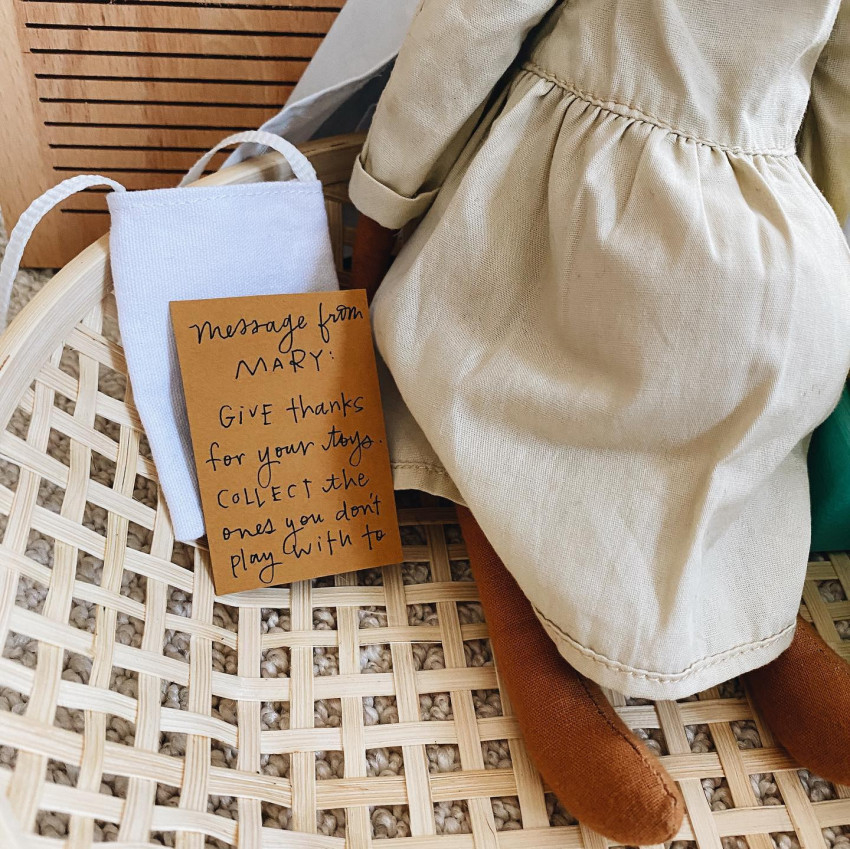 message from
MARY:
GIVE thanks
for your toys.
COLLECT the
ones you don't
play with to